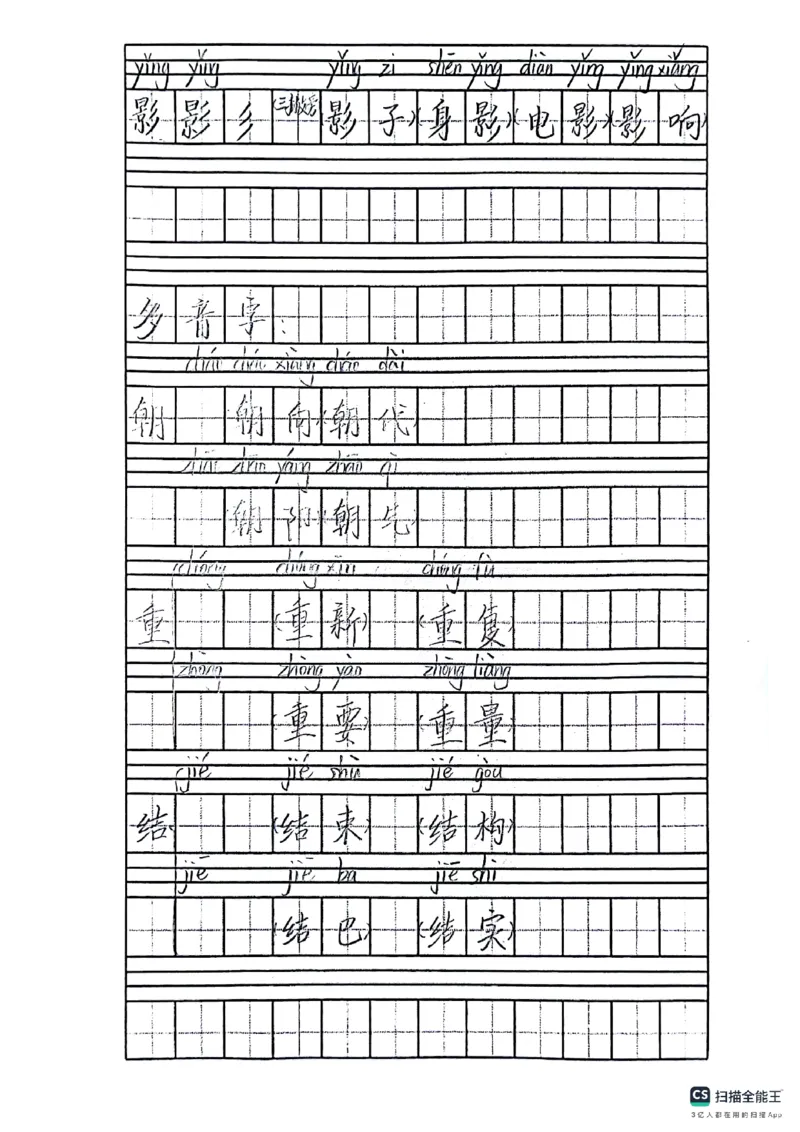 yǐng yǐng yǐng zi shēn yǐng diàn yǐng yǐng xiǎng
影 影 彡 (三撇旁) 影子)(身影)(电影)(影响)
多音字:
cháo cháo xiàng cháo dài
朝 朝向(朝代
zhāo zhāo yáng zhāo qì
朝阳)(朝气
chóng chóng xīn chóng fù
重 (重新) (重复)
zhòng zhòng yào zhòng liàng
(重要) (重量)
jié jié shù jié gòu
结 (结束) (结构)
jiē jiē ba jiē shi
(结巴) (结实)
CS 扫描全能王
3亿人都在用的扫描App